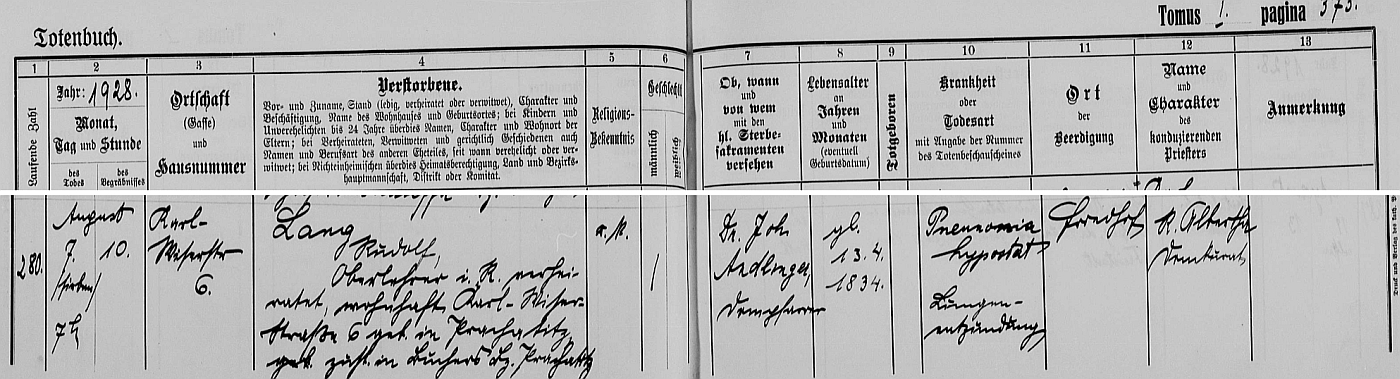 Tomus I. pagina 373.
Totenbuch.
1 2 3 4 5 6 7 8 9 10 11 12 13
Laufende Zahl
Jahr: 1928.
Monat,
Tag und Stunde
des Todes
des Begräbnisses
Ortschaft
(Gasse)
und
Hausnummer
Verstorbene.
Vor- und Zuname, Stand (ledig, verheiratet oder verwitwet), Charakter und
Beschäftigung, Name des Wohnhauses und Geburtsortes; bei Kindern und
Unverehelichten bis 24 Jahre überdies Namen, Charakter und Wohnort der
Eltern; bei Verheirateten, Verwitweten und gerichtlich Geschiedenen auch
Namen und Berufsart des anderen Eheteiles, seit wann verehelicht oder ver-
witwet; bei Nichteinheimischen überdies Heimatsberechtigung, Land und Bezirks-
hauptmannschaft, Distrikt oder Komitat.
Religions-
Bekenntnis
Geschlecht
männlich
weiblich
Ob, wann
und
von wem
mit den
hl. Sterbe-
sakramenten
versehen
Lebensalter
an
Jahren
und
Monaten
(eventuell
Geburtsdatum)
Totgeboren
Krankheit
oder
Todesart
mit Angabe der Nummer
des Totenbeschauscheines
Ort
der
Beerdigung
Name
und
Charakter
des
konduzierenden
Priesters
Anmerkung
280.
August
7.
(sieben)
7h
10.
Karl-
Wiserstr
6.
Lang
Rudolf,
Oberlehrer i. R. verhei-
ratet, wohnhaft Karl-Wiser-
straße 6 geb. in Prachatitz,
zust. in Buchers Bz. Prachatitz
r. k.
/
Dr. Joh
Dompfarrer
gb.
13.4.
1834.
Pneumonia
hypostat
Lungen-
entzündung
Friedhof
Domkurat